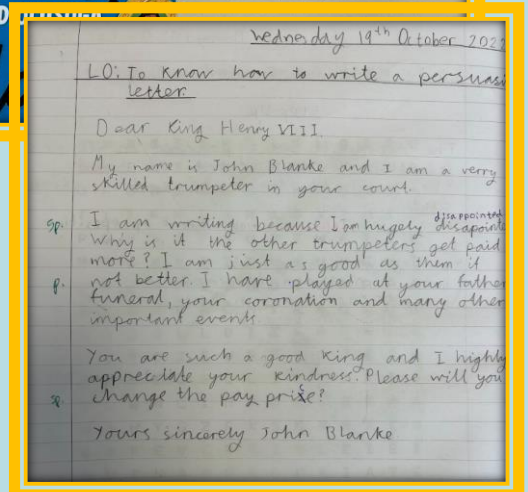 Wednesday 19th October 202
LO: To know how to write a persuasi
letter.
Dear King Henry VIII,
My name is John Blanke and I am a verry
skilled trumpeter in your court.
disappointed
sp. I am writing because I am hugely disapoint
Why is it the other trumpeters get paid
more? I am just as good as them if
p. not better. I have played at your father
funeral, your coronation and many other
important events
You are such a good king and I highly
appreciate your kindness. Please will you
sp. change the pay prise?
Yours sincerely John Blanke